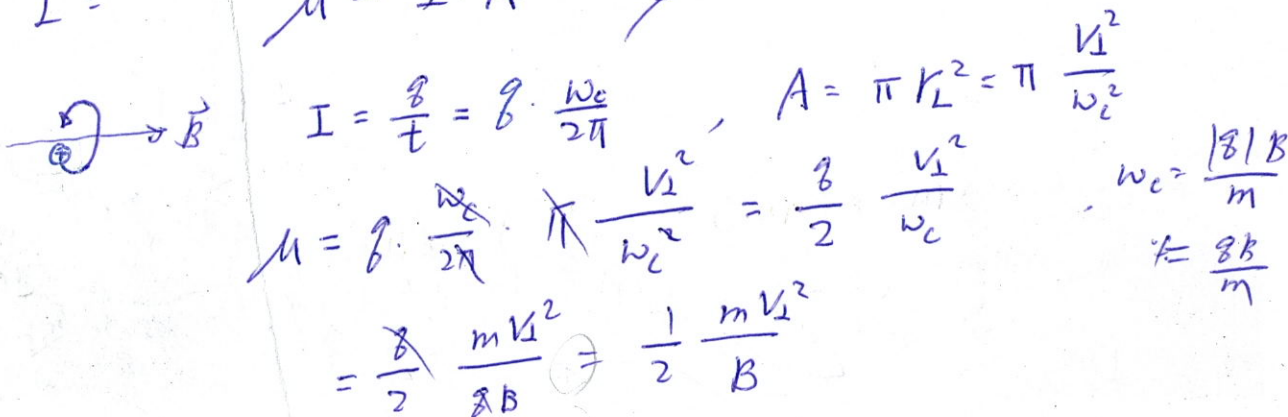 μ = I A
I = q/t = q · ω_c/2π , A = π r_L² = π V_⊥²/ω_c²
⊕ B⃗
μ = q · ω_c/2π · π V_⊥²/ω_c² = q/2 V_⊥²/ω_c , ω_c = |q|B/m
= qB/m
= q/2 mV_⊥²/qB = 1/2 mV_⊥²/B